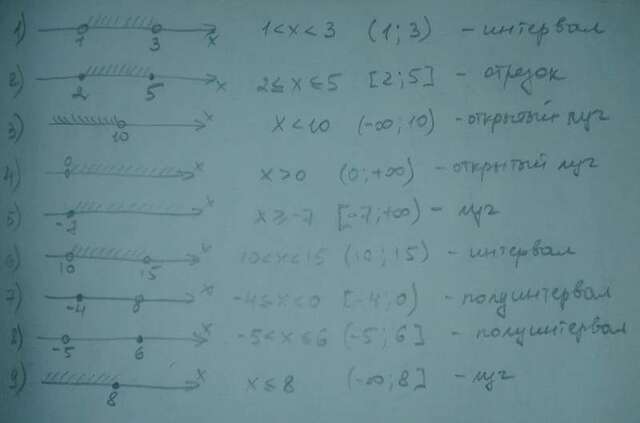 1) 1 3 x 1 < x < 3 (1; 3) – интервал
2) 2 5 x 2 ≤ x ≤ 5 [2; 5] – отрезок
3) 10 x x < 10 (-∞; 10) – открытый луч
4) 0 x x > 0 (0; +∞) – открытый луч
5) -7 x x ≥ -7 [-7; +∞) – луч
6) 10 15 x 10 < x < 15 (10; 15) – интервал
7) -4 0 x -4 ≤ x < 0 [-4; 0) – полуинтервал
8) -5 6 x -5 < x ≤ 6 (-5; 6] – полуинтервал
9) 8 x x ≤ 8 (-∞; 8] – луч